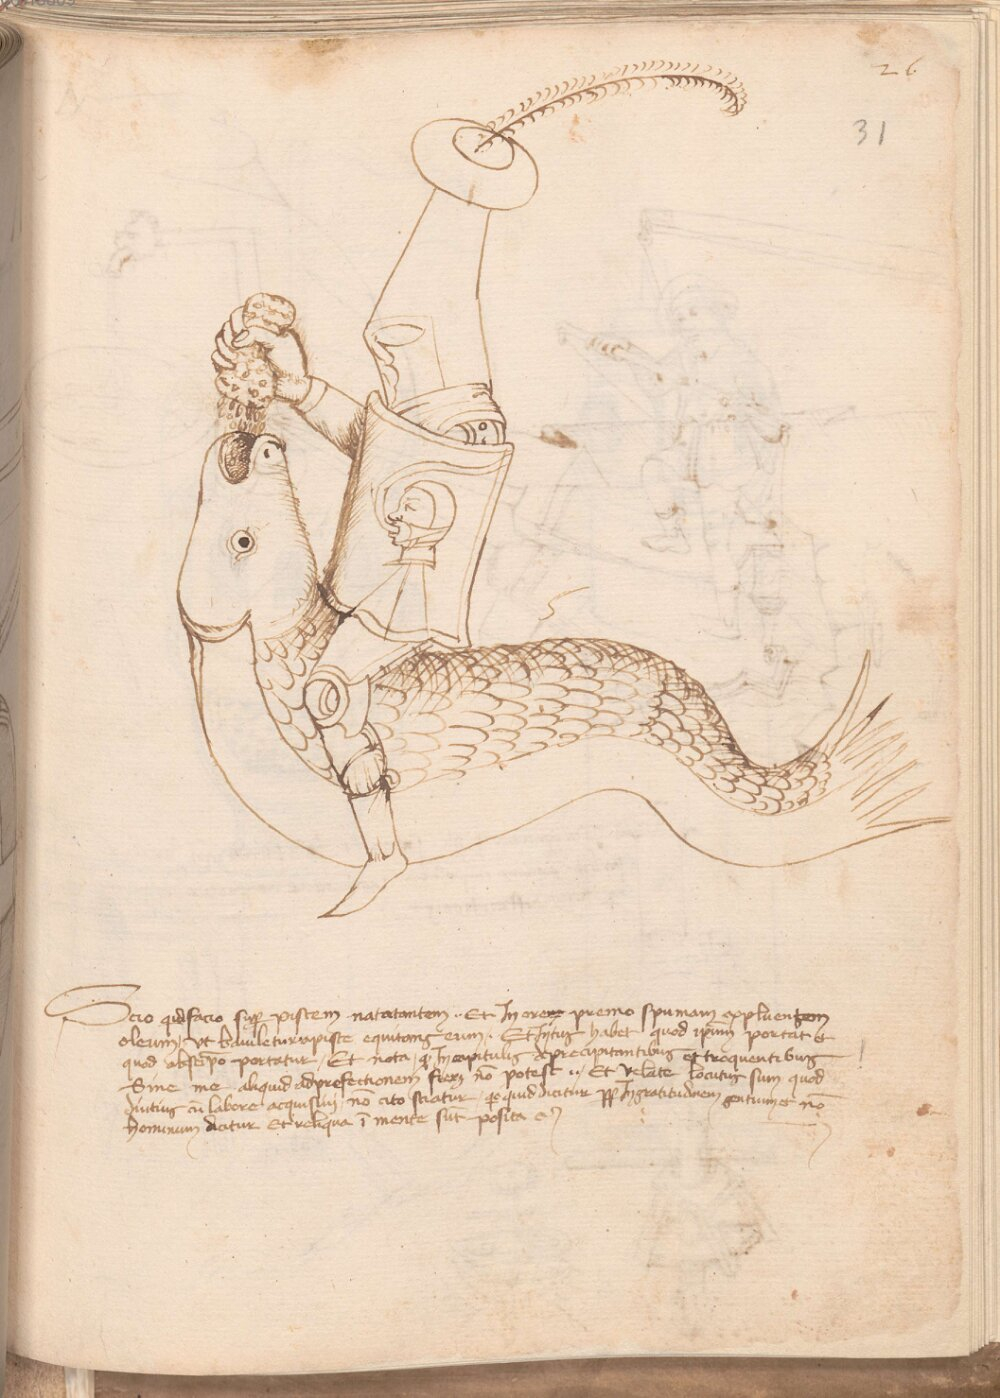 26
31
Scio quid facio sup piscem natatantem .. Et In ore premo spumam expluentem
oleum, ut baiuletur a pisce equitans eum. Et Intus habet quod ipm portat et
quod ab ipso portatur, Et nota, q In capitulis deprecipitantibus et frequentibus
Sine me aliquid ad prefectionem fieri no potest .. Et velate locutus sum quod
diutius cu labore acquisivi no cito sciatur qd dicitur pp Ingratitudinem gentium et no
hominum dicatur Et reliqua i mente sut posita